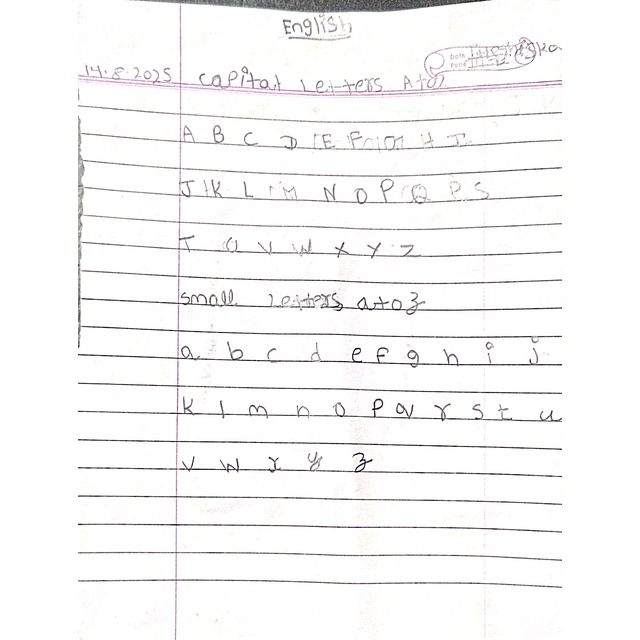 English
14.8.2025 Capital Letters A to Z
A B C D E F G H I
J K L M N O P Q R S
T U V W X Y Z
small letters a to z
a b c d e f g h i j
k l m n o p q r s t u
v w x y z